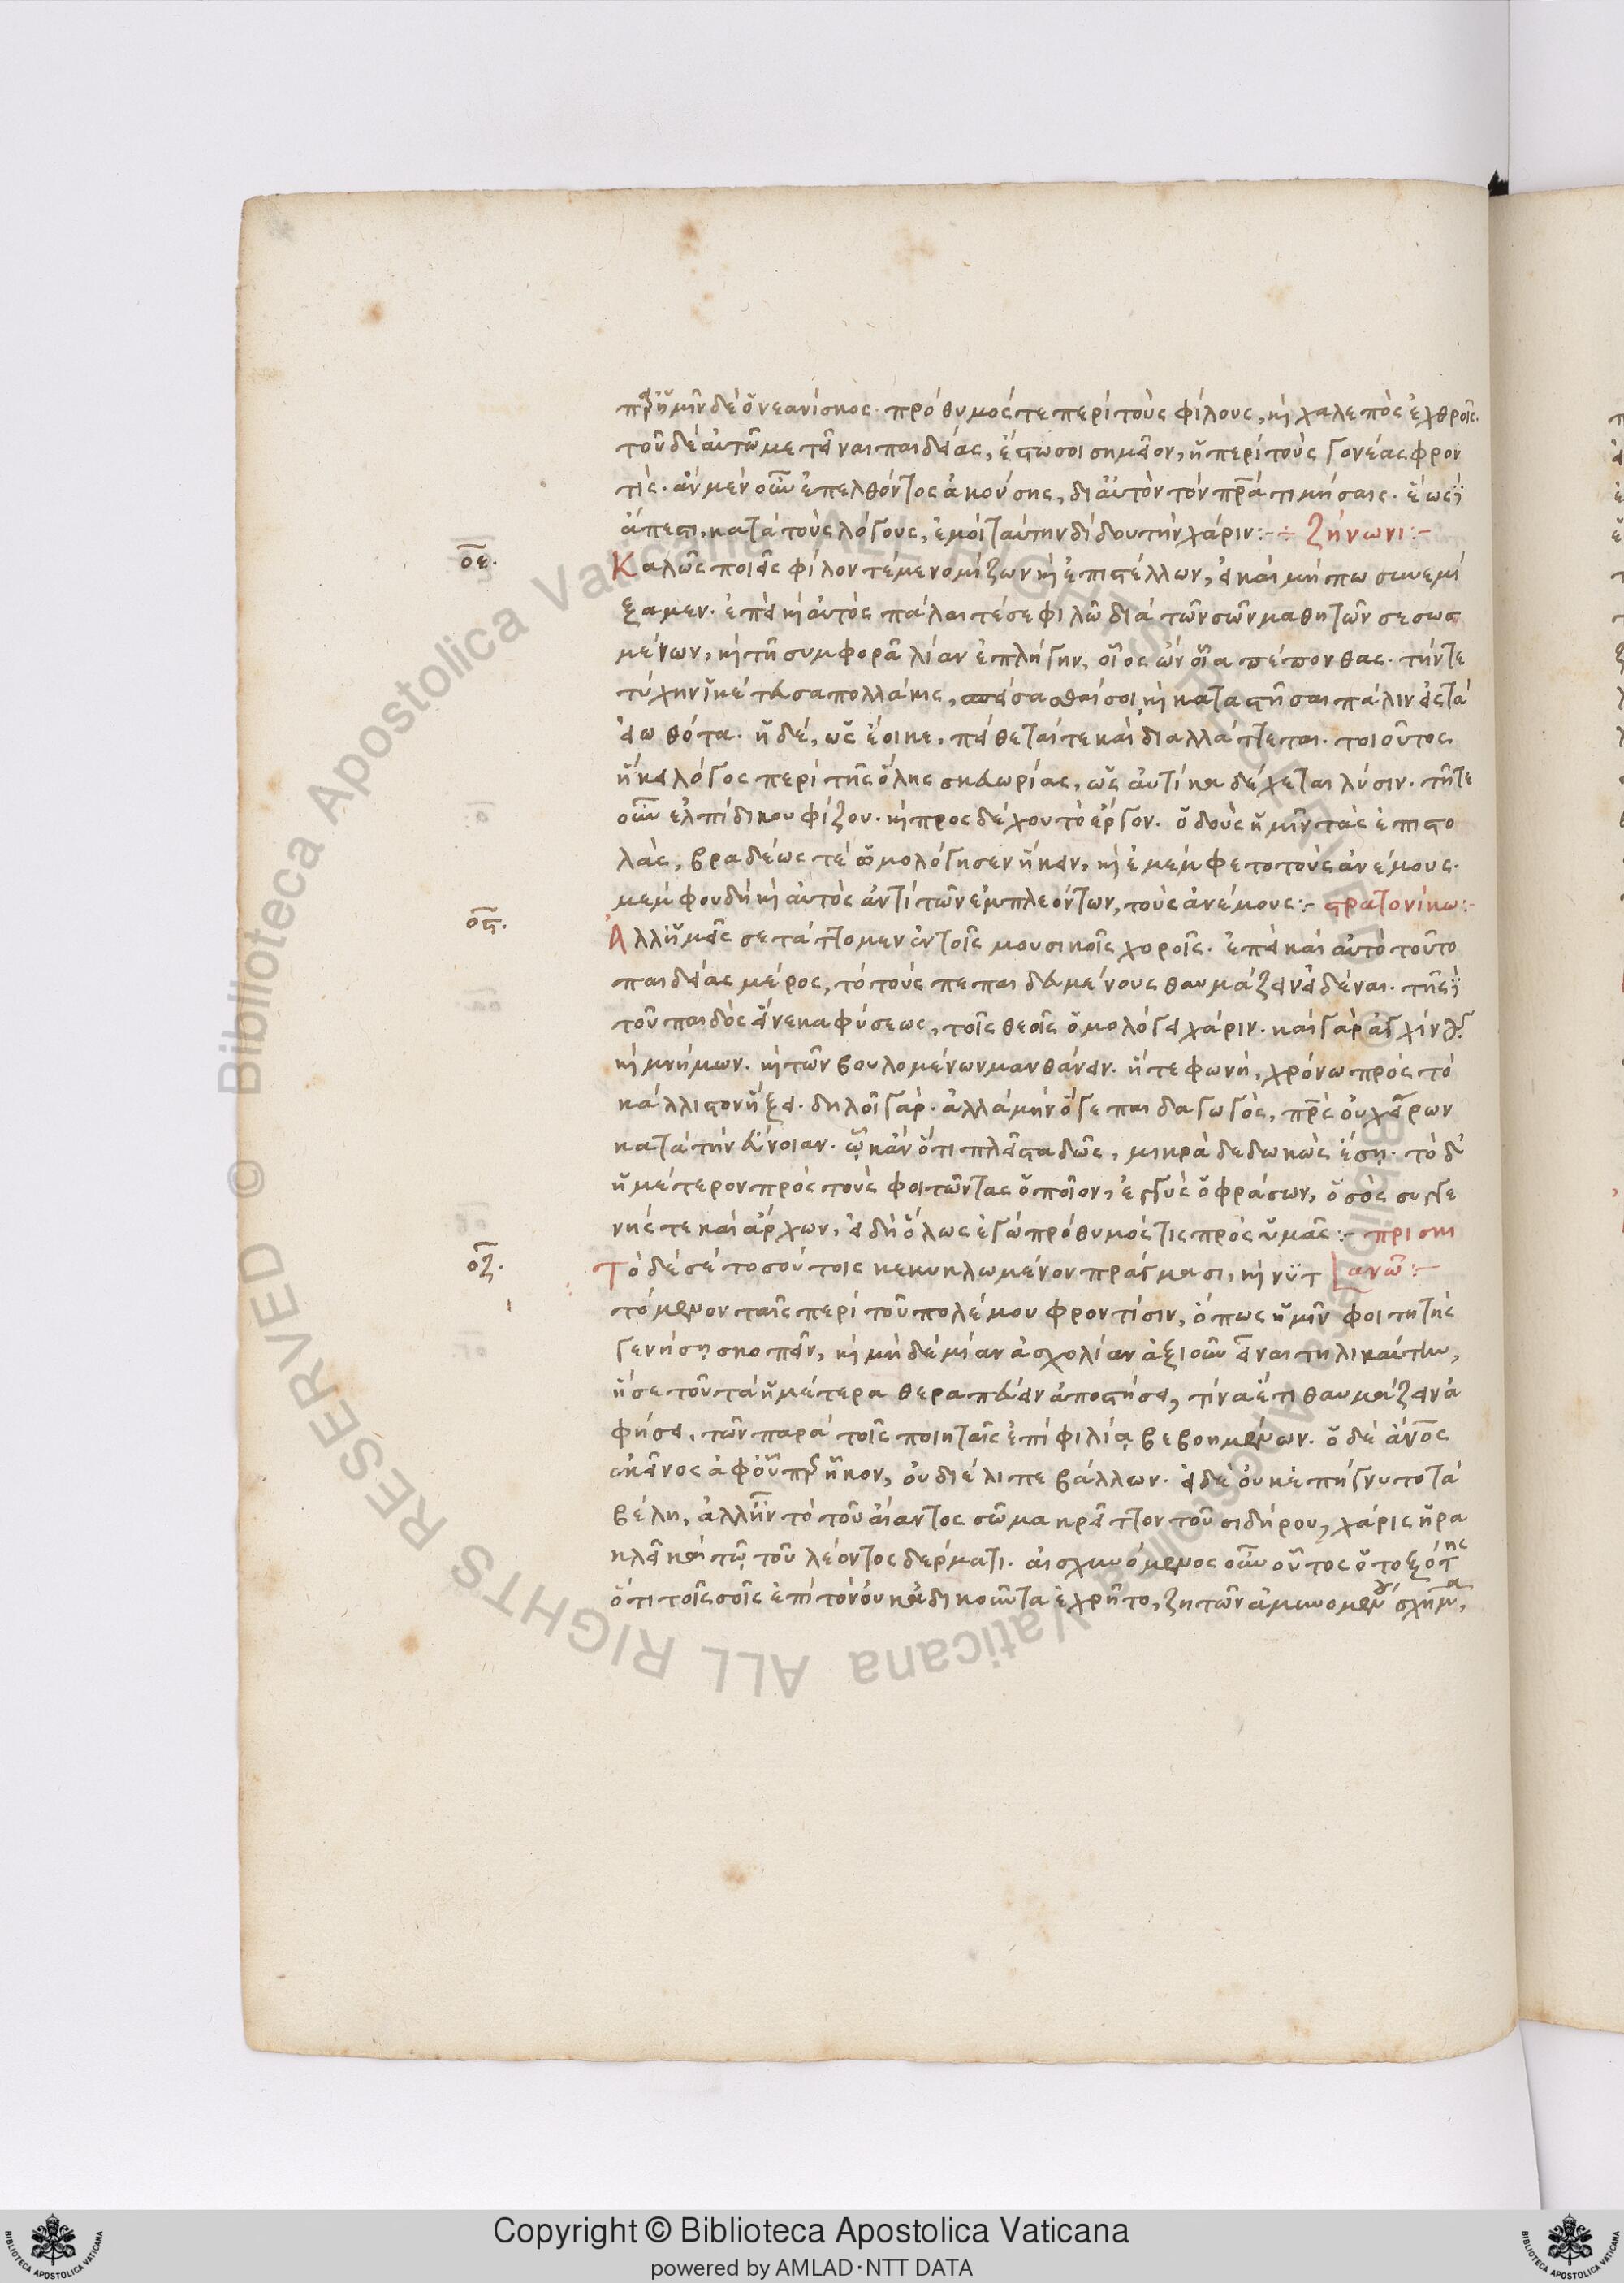 παρ' ἡμῖν δὲ ὁ νεανίσκος. πρόθυμός τε περὶ τοὺς φίλους, κὶ χαλεπὸς ἐχθροῖς.
τοῦ δὲ αὐτῶ μετεῖναι παιδείας, ἔστω σοι σημεῖον, ἡ περὶ τοὺς γονέας φρον
τίς. ἂν μὲν οὖν ἐπελθόντος ἀκούσης, δι αὐτὸν τὸν πρα τιμήσαις. ἕως
ἄπεστι, κατὰ τοὺς λόγους, ἐμοὶ ταύτην δίδου τὴν χάριν:- ÷ Ζήνωνι:-
οε.
Καλῶς ποιεῖς φίλον τέ με νομίζων κὶ ἐπιστέλλων, εἰ καὶ μήπω συνεμί
ξαμεν. ἐπεὶ κὶ αὐτὸς πάλαι τέ σε φιλῶ διὰ τῶν σῶν μαθητῶν σεσωσ
μένων, κὶ τῆ συμφορᾶ λίαν ἐπλήγην, οἷος ὢν οἷα πέπονθας. τήν τε
τύχην ἱκέτευσα πολλάκις, σπείσασθαί σοι, κὶ καταστῆσαι πάλιν εἰς τὰ
εἰωθότα. ἡ δέ, ὡς ἔοικε, πείθεταί τε καὶ διαλλάττεται. τοιοῦτος
ἥκει λόγος περὶ τῆς ὅλης σκευωρίας, ὡς αὐτίκα δέχεται λύσιν. τῆ τε
οὖν ἐλπίδι κουφίζου. κὶ προςδέχου τὸ ἔργον. ὁ δοὺς ἡμῖν τὰς ἐπιστο
λὰς, βραδέως τέ ὡμολόγησεν ἥκειν, κὶ ἐμέμφετο τοὺς ἀνέμους.
μέμφου δὴ κὶ αὐτὸς ἀντὶ τῶν ἐμπλεόντων, τοὺς ἀνέμους:- στρατονίκω:-
οστ.
Ἀλλ' ἡμεῖς σε τάττομεν ἐν τοῖς μουσικοῖς χοροῖς. ἐπεὶ καὶ αὐτὸ τοῦτο
παιδείας μέρος, τὸ τοὺς πεπαιδευμένους θαυμάζειν εἰδέναι. τῆς
τοῦ παιδὸς εἵνεκα φύσεως, τοῖς θεοῖς ὁμολόγει χάριν. καὶ γὰρ ἀγχίνους
κὶ μνήμων. κὶ τῶν βουλομένων μανθάνειν. ἥ τε φωνὴ, χρόνω πρὸς τὸ
κάλλιστον ἥξει. δηλοῖ γάρ. ἀλλὰ μὴν ὅ γε παιδαγωγὸς, πρς οὐ χείρων
κατὰ τὴν εὔνοιαν. ᾧ κἂν ὅτι πλεῖστα δῶς, μικρὰ δεδωκὼς ἔση. τὸ δ'
ἡμέτερον πρὸς τοὺς φοιτῶντας ὁποῖον, ἐγγὺς ὁ φράσων, ὁ σὸς συγγε
νής τε καὶ ἄρχων, εἰ δὴ ὅλως ἐγὼ πρόθυμός τις πρὸς ὑμᾶς:- πρισκι
ανῶ:-
οζ.
Τὸ δέ σέ τοσούτοις κεκυκλωμένον πράγμασι, κὶ νυτ
τόμενον ταῖς περὶ τοῦ πολέμου φροντίσιν, ὅπως ἡμῖν φοιτητὴς
γενήση σκοπεῖν, κὶ μηδέ μίαν ἀσχολίαν ἀξιοῦν εἶναι τηλικαύτην,
ἥ σε τοῦ τὰ ἡμέτερα θεραπεύειν ἀποστήσει, τίνα ἔτι θαυμάζειν ἀ
φήσει. τῶν παρὰ τοῖς ποιηταῖς ἐπὶ φιλία βεβοημένων. ὁ δὲ ἄνος
ἐκεῖνος ἀφ' οὗπερ ἧκον, οὐ διέλιπε βάλλων. εἰ δὲ οὐκ ἐπήγνυτο τὰ
βέλη, ἀλλ' ἦν τὸ τοῦ αἴαντος σῶμα κρεῖττον τοῦ σιδήρου, χάρις ἡρα
κλεῖ καὶ τῶ τοῦ λέοντος δέρματι. αἰσχυνόμενος οὖν οὗτος ὁ τοξότης
ὅτι τοῖς σοῖς ἐπὶ τὸν οὐκ ἀδικοῦντα ἐχρῆτο, ζητῶν ἀμυνομένου σχῆμα,
Copyright © Biblioteca Apostolica Vaticana
powered by AMLAD·NTT DATA
© Biblioteca Apostolica Vaticana ALL RIGHTS RESERVED